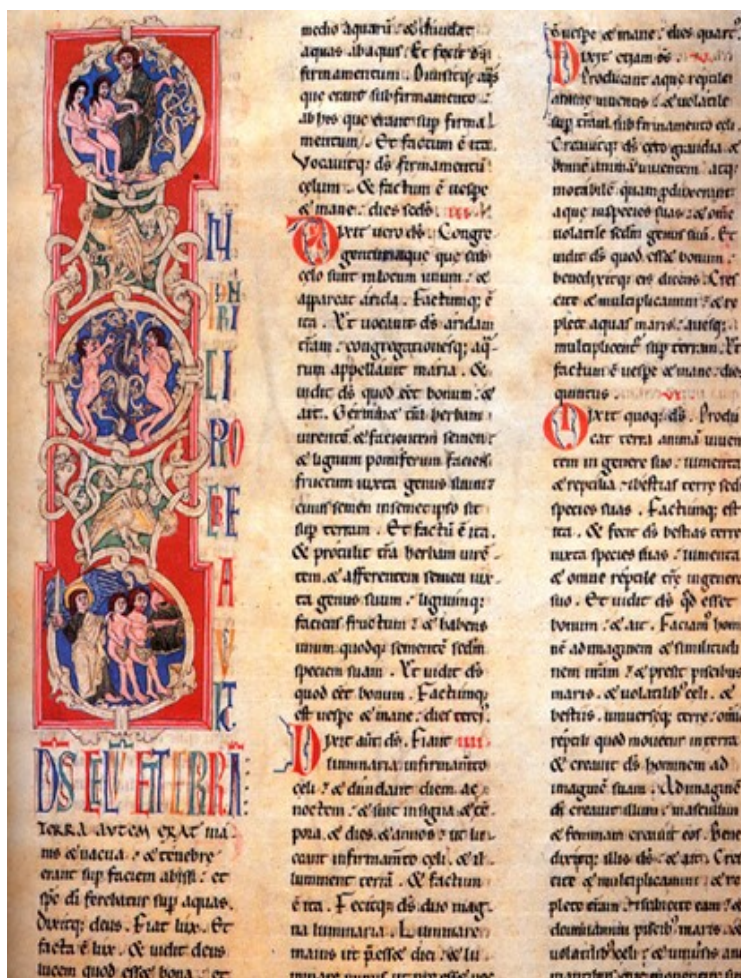 DS CELV ET TERRA
TERRA AVTEM ERAT ina
nis & uacua : & tenebre
erant sup faciem abissi : et
sps di ferebatur sup aquas.
Dixitq; deus. Fiat lux. Et
facta ē lux. & uidit deus
lucem quod esset bona : et
medio aquarū : & diuidat
aquas ab aquis. Et fecit ds
firmamentum. Diuisitq; aqs
que erant sub firmamento
ab his que erant sup firma
mentum. Et factum ē ita.
Vocauitq; ds firmamentū
celum. & factum ē uespe
& mane dies scds. III.
Dixit uero ds. Congre
gentur aque que sub
celo sunt in locum unum : &
appareat arida. Factumq; ē
ita. Et uocauit ds aridam
trām : congregationesq; aq
rum appellauit maria. &
uidit ds quod eēt bonum : &
ait. Germinet trā herbam
uirentē & facientem semen :
& lignum pomiferum faciens
fructum iuxta genus suum :
cuius semen in semet ipso sit
sup terram. Et factū ē ita.
& protulit trā herbam uirē
tem. & afferentem semen iux
ta genus suum : lignumq;
faciens fructum : & habens
unum quodq; sementē scdm
speciem suam. Et uidit ds
quod eēt bonum. Factumq;
est uespe & mane : dies terc'.
Dixit aūt ds. Fiant IIII
luminaria in firmamto
celi : & diuidant diem ac
noctem : & sint in signa & tē
pora. & dies. & annos : ut lu
ceant in firmamto celi. & il
luminent terrā. & factum
ē ita. Fecitq; ds duo mag
na luminaria. Luminare
maius ut pēsset diei : & lu
minare minus ut
ē uespe & mane : dies quart'.
Dixit etiam ds.
Producant aque reptile
anime uiuentis : & uolatile
sup trām sub firmamento celi.
Creauitq; ds cete grandia. &
omnē animā uiuentem atq;
motabilē quam pduxerant
aque in species suas : & omē
uolatile scdm genus suū. Et
uidit ds quod esset bonum :
benedixitq; eis dicens. Cres
cite & multiplicamini : & re
plete aquas maris : auesq;
multiplicent' sup terram. Et
factum ē uespe & mane : dies
quintus. VI.
Dixit quoq; ds. Produ
cat terra animā uiuen
tem in genere suo : iumenta
& reptilia : & bestias terre scdm
species suas. Factumq; est
ita. & fecit ds bestias terre
iuxta species suas : iumenta
& omne reptile tre in genere
suo. Et uidit ds qd esset
bonum : & ait. Faciam' hom
nē ad imaginem & similitudi
nem nram : & presit piscibus
maris. & uolatilib' celi. &
bestiis. uniuerseq; terre : omiq;
reptili quod mouetur in terra
& creauit ds hominem ad
imaginē suam. Ad imaginē
di creauit illum : masculum
& feminam creauit eos. Bene
dixitq; illis ds : & ait. Cres
cite & multiplicamini : & re
plete terram : & subicite eam : &
dominamini piscib' maris. &
uolatilib' celi : & uniuersis